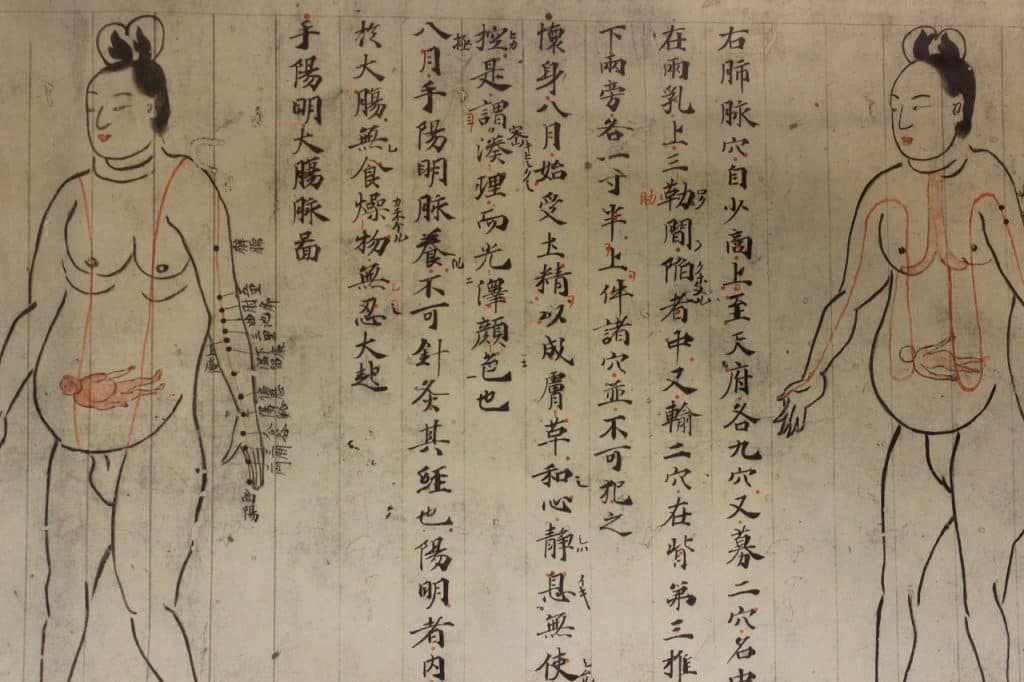 右肺脉穴自少商上至天府各九穴又募二穴名中
在兩乳上三勒間陷者中又輸二穴在背第三椎
肋
下兩旁各一寸半上件諸穴並不可犯之
懷身八月始受土精以成膚草和心静息無使
控是謂湊理而光澤顔色也
極
八月手陽明脉養不可針灸其經也陽明者内
於大腸無食燥物無忍大起
手陽明大腸脉啚
商陽